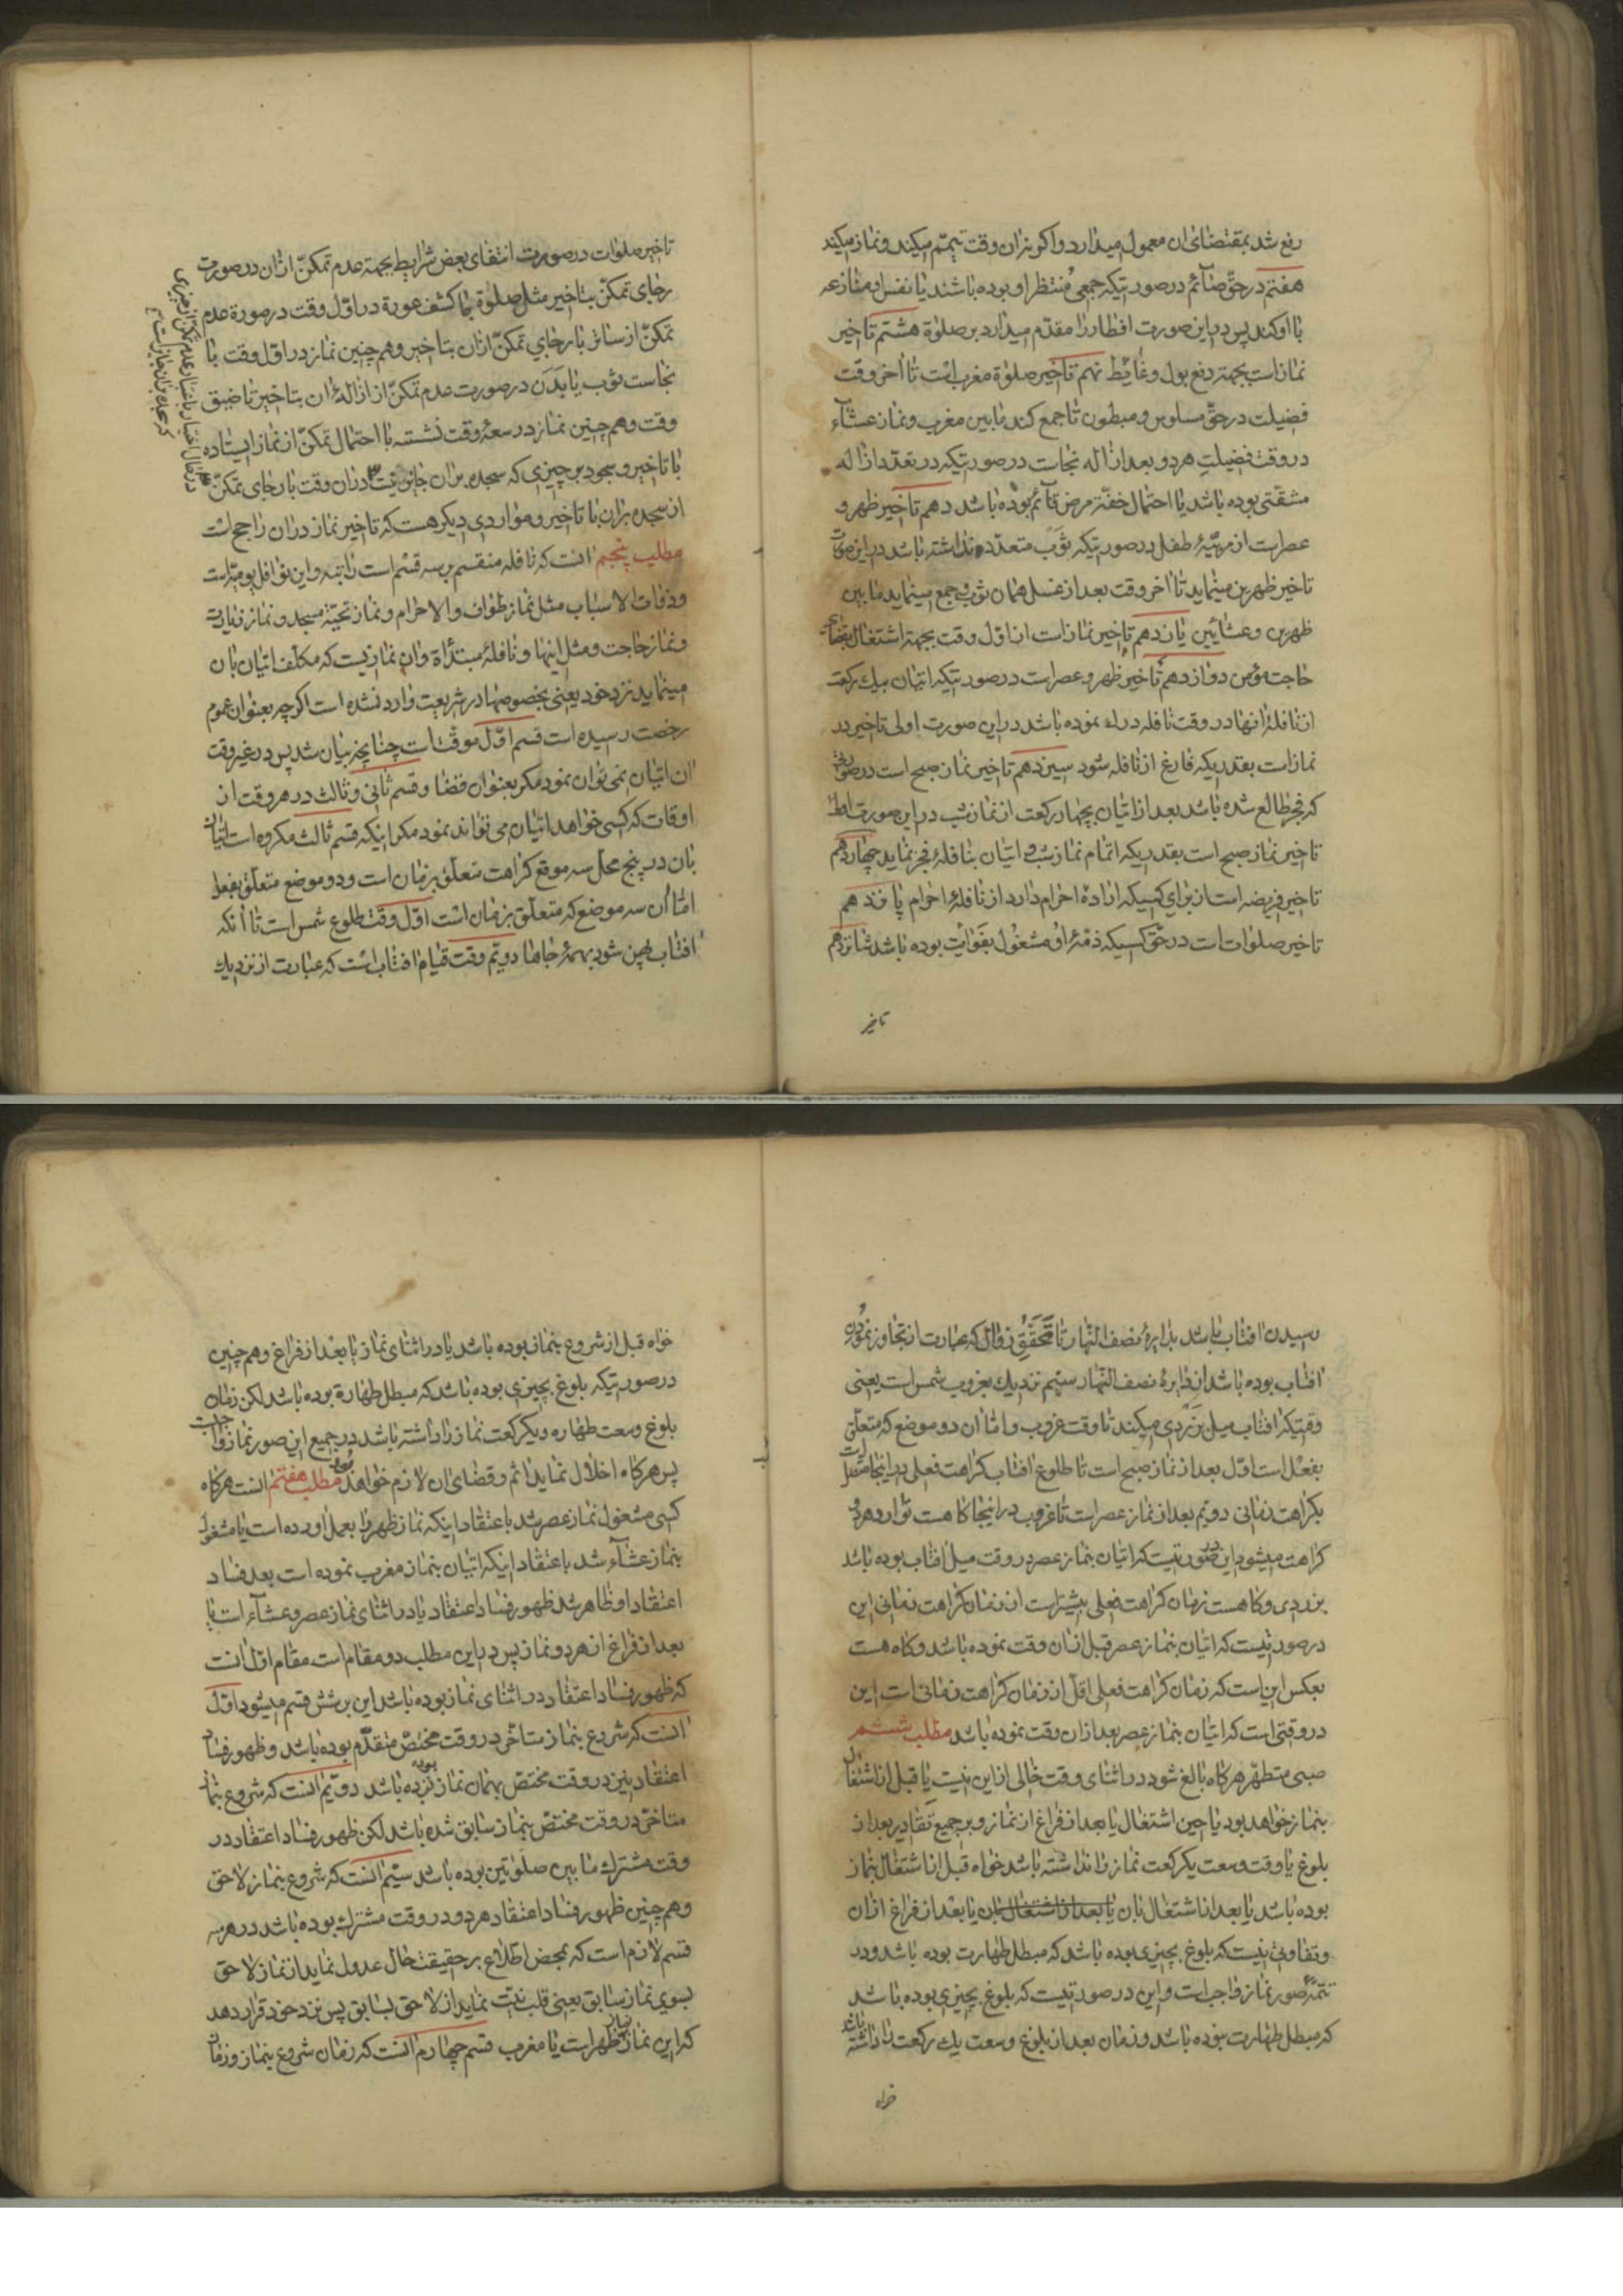 رفع شد بمقتضای ان معمول میدارد واکر نه ان وقت تیمّم میکند ونماز میکند
هفتم در حقّ صٰائم در صورتیکه جمعی مُنتظر او بوده باشند یٰا نفس او منٰازعه
بٰا او کند پس در این صورت افطار را مقدّم میدارد بر صلوٰة هشتم تٰاخیر
نمٰاز است بجهة رفع بول وغٰایٔط نهم تٰاخیر صلوٰة مغرب است تٰا اٰخر وقت
فضیلت در حقّ مسلوس و مبطون تٰا جمع کند مٰابین مغرب ونمٰاز عشٰاء
در وقت فضیلتِ هر دو بعد از ازٰاله نجاست در صورتیکه در تعدّد ازٰاله
مشقّتی بوده بٰاشد یٰا احتمال خفّة مرض قٰائم بوده بٰاشد دهم تٰاخیر ظهر و
عصر است از مربّیهٔ طفل در صورتیکه ثوب متعدّده نداشته بٰاشد در این صورت
تٰاخیر ظهرین مینماید تٰا اٰخر وقت بعد از غسل همٰان ثوب و جمع مینماید مٰا بین
ظهرین وعشٰائین یٰازدهم تٰاخیر نمٰاز است از اوّل وقت بجهة اشتغال بقضٰای
حٰاجت مؤمن دوازدهم تٰاخیر ظهر وعصر است در صورتیکه اتیان بیک رکعت
از نٰافلهٔ انهٰا در وقت نٰافله دراء نموده بٰاشد در این صورت اولی تٰاخیر در
نمٰاز است بقدریکه فٰارغ از نٰافله شود سیزدهم تٰاخیر نمٰاز صبح است در صورتی
که فجر طٰالع شده بٰاشد بعد از اتیٰان بچهٰار رکعت از نمٰاز شب در این صورت
تٰاخیر نمٰاز صبح است بقدریکه اتمٰام نمٰاز شب و اتیٰان بنٰافلهٔ فجر نمٰاید چهٰاردهم
تٰاخیر فریضه است از برٰای کسیکه ارٰادهٔ احرٰام دٰارد از نٰافلهٔ احرٰام پٰانزدهم
تٰاخیر صلوٰات است در حقّ کسیکه ذمّهٔ او مشغول بفوٰایت بوده بٰاشد شٰانزدهم
تاخیر
تٰاخیر صلوٰات در صورت انتفٰای بعض شرٰایط بجهة عدم تمکنّ ازٰان در صورت
رجٰای تمکنّ بتٰاخیر مثل صلوٰة بٰا کشف عورة در اوّل وقت در صورة عدم
تمکنّ از سٰاتر بٰا رجٰای تمکنّ ازٰان بتٰاخیر وهم چنین نمٰاز در اوّل وقت بٰا
نجٰاست ثوب یٰا بدَن در صورت عدم تمکنّ از ازٰالهٔ ان بتٰاخیر تٰا ضیق
وقت وهم چنین نمٰاز در سعهٔ وقت نشسته بٰا احتمٰال تمکنّ از نمٰاز ایستٰاده
بٰا تٰاخیر و سجود بر چیزی که سجده برٰان جٰایز نیست درٰان وقت بٰا رجٰای تمکنّ
از سجده برٰان بٰا تٰاخیر و موٰاردی دیکر هست که تٰاخیر نمٰاز درٰان رٰاجح است
مطلب پنجم اٰنست که نٰافله منقسم بر سه قسم است رٰاتبه و این نوٰافل یومیّه است
وذوٰات الاسبٰاب مثل نمٰاز طوٰاف والاحرٰام ونمٰاز تحیّة مسجد و نمٰاز زیٰارت
ونمٰاز حٰاجت ومثل اینهٰا ونٰافلهٔ مبتدٔاة وان نمٰازیست که مکلّف اتیٰان بٰان
مینمٰاید نزد خود یعنی بخصوصهٰا در شریعت وٰارد نشده است اکرچه بعنوٰان عموم
رخصت رسیده است قسم اوّل موقّتٰات چنٰانچه بیٰان شد پس در غیر وقت
ان اتیٰان نمی توٰان نمود مکر بعنوٰان قضٰا وقسم ثٰانی وثٰالث در هر وقت از
اوقٰات که کسی خوٰاهد اتیٰان می توٰاند نمود مکر اینکه قسم ثٰالث مکروه است اتیٰان
بٰان در پنج محلّ سه موقع کرٰاهت متعلّق بزمٰان است ودو موضع متعلّق بفعل
امّٰا اٰن سه موضع که متعلّق بزمٰان است اوّل وقت طلوع شمس است تٰا اٰنکه
افتٰاب پهن شود بهمهٔ جٰاهٰا دویّم وقت قیٰام افتٰاب است که عبٰارت از نزدیک
رسیدن افتٰاب بٰاشد بدٰایرهٔ نصف النّهٰار تٰا تَحَقُّقِ زوٰال که عبٰارت از تجٰاوز نمودن
افتٰاب بوده بٰاشد از دٰایرهٔ نصف النّهٰار سیّم نزدیک بغروب شمس است یعنی
وقتیکه افتٰاب میل بزَردی میکند تٰا وقت غروب وامّٰا ان دو موضع که متعلّق
بفعل است اوّل بعد از نمٰاز صبح است تٰا طلوع افتٰاب کرٰاهت فعلی در اینجٰا متّصل
بکرٰاهت زمٰانی دویّم بعد از نمٰاز عصر است تٰا غروب در اینجٰا کٰاهست توٰارد هر دو
کرٰاهت میشود این در صورتیست که اتیٰان بنمٰاز عصر در وقت میل افتٰاب بوده بٰاشد
بزردی وکٰاهست زمٰان کرٰاهت فعلی بیشتر است از زمٰان کرٰاهت زمٰانی این
در صورتیست که اتیٰان بنمٰاز عصر قبل ازٰان وقت نموده بٰاشد وکٰاه هست
بعکس این است که زمٰان کرٰاهت فعلی اقلّ از زمٰان کرٰاهت زمٰانی است این
در وقتی است که اتیٰان بنمٰاز عصر بعد ازٰان وقت نموده بٰاشد مطلب ششم
صبی متطهّر هرکٰاه بٰالغ شود در اثنٰای وقت خٰالی از این نیست یٰا قبل از اشتغٰال
بنمٰاز خوٰاهد بود یٰا حین اشتغٰال یٰا بعد از فرٰاغ از نمٰاز و بر جمیع تقٰادیر بعد از
بلوغ یٰا وقت وسعت یکرکعت نمٰاز رٰا ندٰاشته بٰاشد خوٰاه قبل از اشتغٰال بنمٰاز
بوده بٰاشد یٰا بعد از اشتغٰال بٰان یٰا بعد از اشتغٰال بٰان یٰا بعد از فرٰاغ ازٰان
وتفٰاوتی نیست که بلوغ بچیزی بوده بٰاشد که مبطل طهٰارت بوده بٰاشد ودر
تتمّهٔ صور نمٰاز وٰاجب است و این در صورتیست که بلوغ بچیزی بوده بٰاشد
که مبطل طهٰارت نبوده بٰاشد وزمٰان بعد از بلوغ وسعت یک رکعت رٰا دٰاشته بٰاشد
خواه
خوٰاه قبل از شروع بنمٰاز بوده بٰاشد یٰا در اثنٰای نمٰاز یٰا بعد از فرٰاغ وهم چنین
در صورتیکه بلوغ بچیزی بوده بٰاشد که مبطل طهٰارة بوده بٰاشد لکن زمٰان
بلوغ وسعت طهٰاره ویکرکعت نمٰاز رٰا دٰاشته بٰاشد در جمیع این صور نمٰاز وٰاجب است
پس هرکٰاه اخلٰال نمٰاید اثم وقضٰای ان لٰازم خوٰاهد بود مطلب هفتم اٰنست هرکٰاه
کسی مشغول نمٰاز عصر شد بٰاعتقٰاد اینکه نمٰاز ظهر رٰا بعمل اورده است یٰا مشغول
بنمٰاز عشٰاء شد بٰاعتقٰاد اینکه اتیٰان بنمٰاز مغرب نموده است بعد فسٰاد
اعتقٰاد او ظٰاهر شد ظهور فسٰاد اعتقٰاد یٰا در اثنٰای نمٰاز عصر وعشٰاء است یٰا
بعد از فرٰاغ از هر دو نمٰاز پس در این مطلب دو مقٰام است مقٰام اوّل اٰنست
که ظهور فسٰاد اعتقٰاد در اثنٰای نمٰاز بوده بٰاشد این بر شش قسم میشود اوّل
اٰنست که شروع بنمٰاز متٰاخّر در وقت مختصّ متقدّم بوده بٰاشد وظهور فسٰاد
اعتقٰاد نیز در وقت مختصّ بهمٰان نمٰاز بوده بٰاشد دویّم اٰنست که شروع بنمٰاز
متٰاخّر در وقت مختصّ بنمٰاز سٰابق شده بٰاشد لکن ظهور فسٰاد اعتقٰاد در
وقت مشترک مٰا بین صلوٰتین بوده بٰاشد سیّم اٰنست که شروع بنمٰاز لٰاحق
وهم چنین ظهور فسٰاد اعتقٰاد هر دو در وقت مشترک بوده بٰاشد در هر سه
قسم لٰازم است که بمحض اطّلٰاع بر حقیقت حٰال عدول نمٰاید از نمٰاز لٰاحق
بسوی نمٰاز سٰابق یعنی قلب نیّت نمٰاید از لٰاحق بسٰابق پس نزد خود قرٰار دهد
که این نمٰاز نمٰاز ظهر است یٰا مغرب قسم چهٰارم اٰنست که زمٰان شروع بنمٰاز وزمٰان